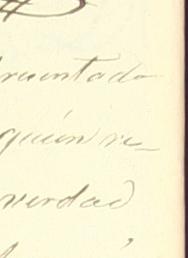 resentado
quien re-
verdad